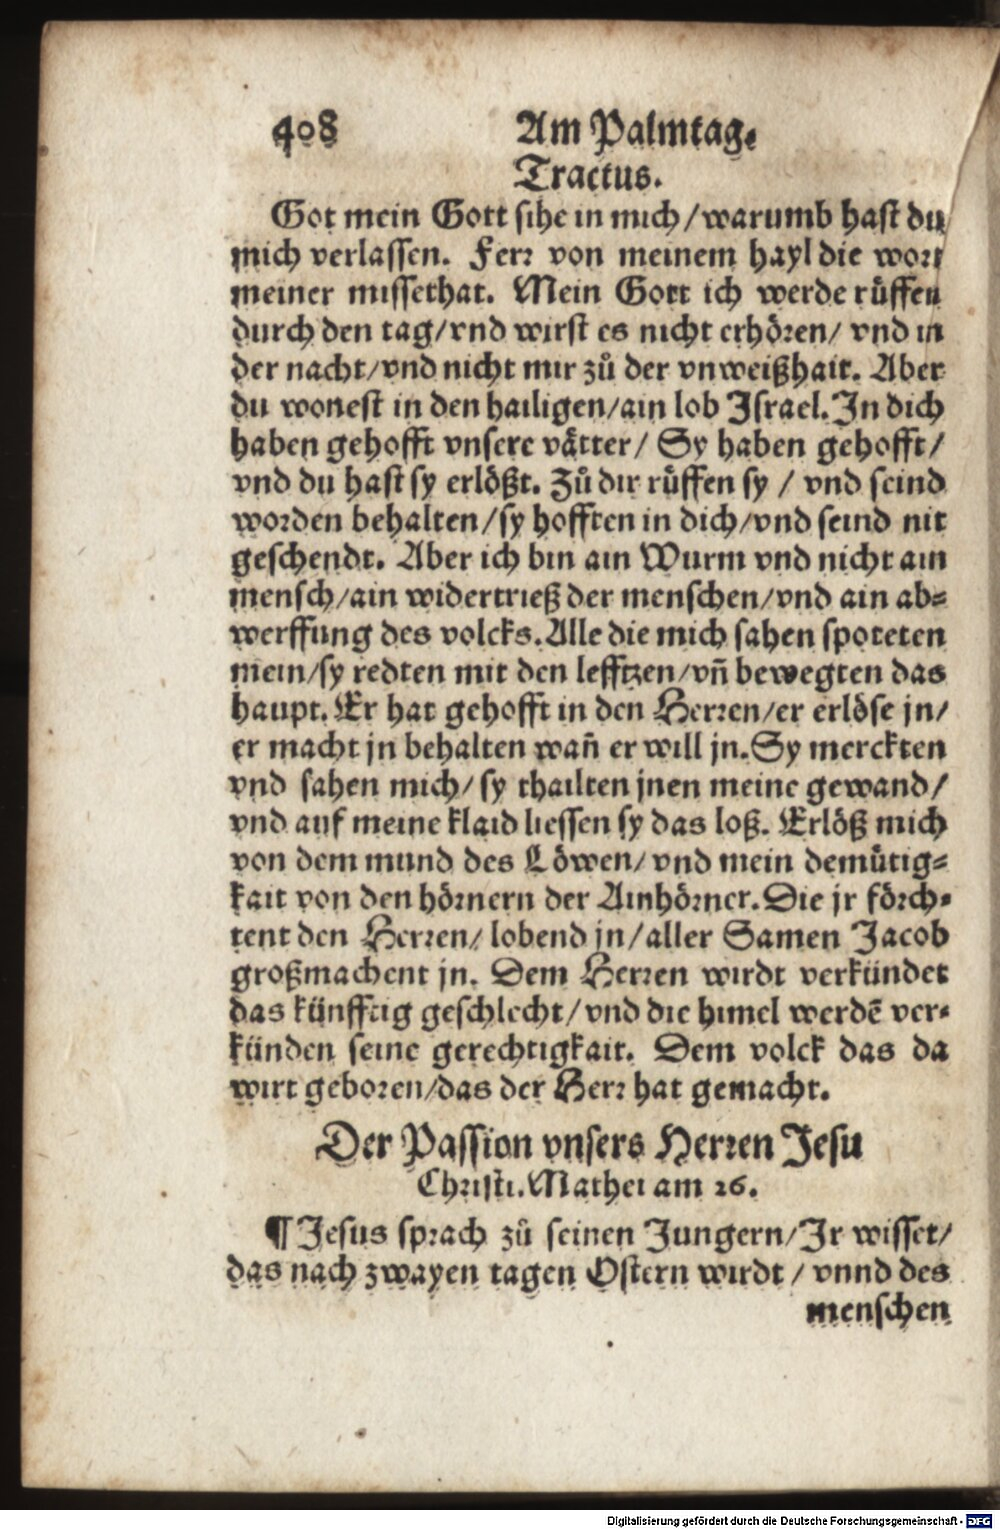 408 Am Palmtag.
Tractus.
Got mein Gott sihe in mich/warumb hast du
mich verlassen. Ferr von meinem hayl die wort
meiner missethat. Mein Gott ich werde rüffen
durch den tag/vnd wirst es nicht erhören/ vnd in
der nacht/vnd nicht mir zů der vnweißhait. Aber
du wonest in den hailigen/ain lob Israel. In dich
haben gehofft vnsere vätter/ Sy haben gehofft/
vnd du hast sy erlößt. Zů dir rüffen sy / vnd seind
worden behalten/sy hofften in dich/vnd seind nit
geschendt. Aber ich bin ain Wurm vnd nicht ain
mensch/ain widertrieß der menschen/vnd ain ab=
werffung des volcks. Alle die mich sahen spoteten
mein/sy redten mit den lefftzen/vñ bewegten das
haupt. Er hat gehofft in den Herren/er erlöse jn/
er macht jn behalten wañ er will jn. Sy merckten
vnd sahen mich/ sy thailten jnen meine gewand/
vnd auf meine klaid liessen sy das loß. Erlöß mich
von dem mund des Löwen/ vnd mein demütig=
kait von den hörnern der Ainhörner. Die jr förch=
tent den Herren/ lobend jn/aller Samen Jacob
großmachent jn. Dem Herren wirdt verkündet
das künfftig geschlecht/ vnd die himel werdē ver=
künden seine gerechtigkait. Dem volck das da
wirt geboren/das der Herr hat gemacht.
Der Passion vnsers Herren Jesu
Christi. Mathei am 26.
¶ Jesus sprach zů seinen Jungern/Ir wisset/
das nach zwayen tagen Ostern wirdt / vnnd des
menschen
Digitalisierung gefördert durch die Deutsche Forschungsgemeinschaft - DFG